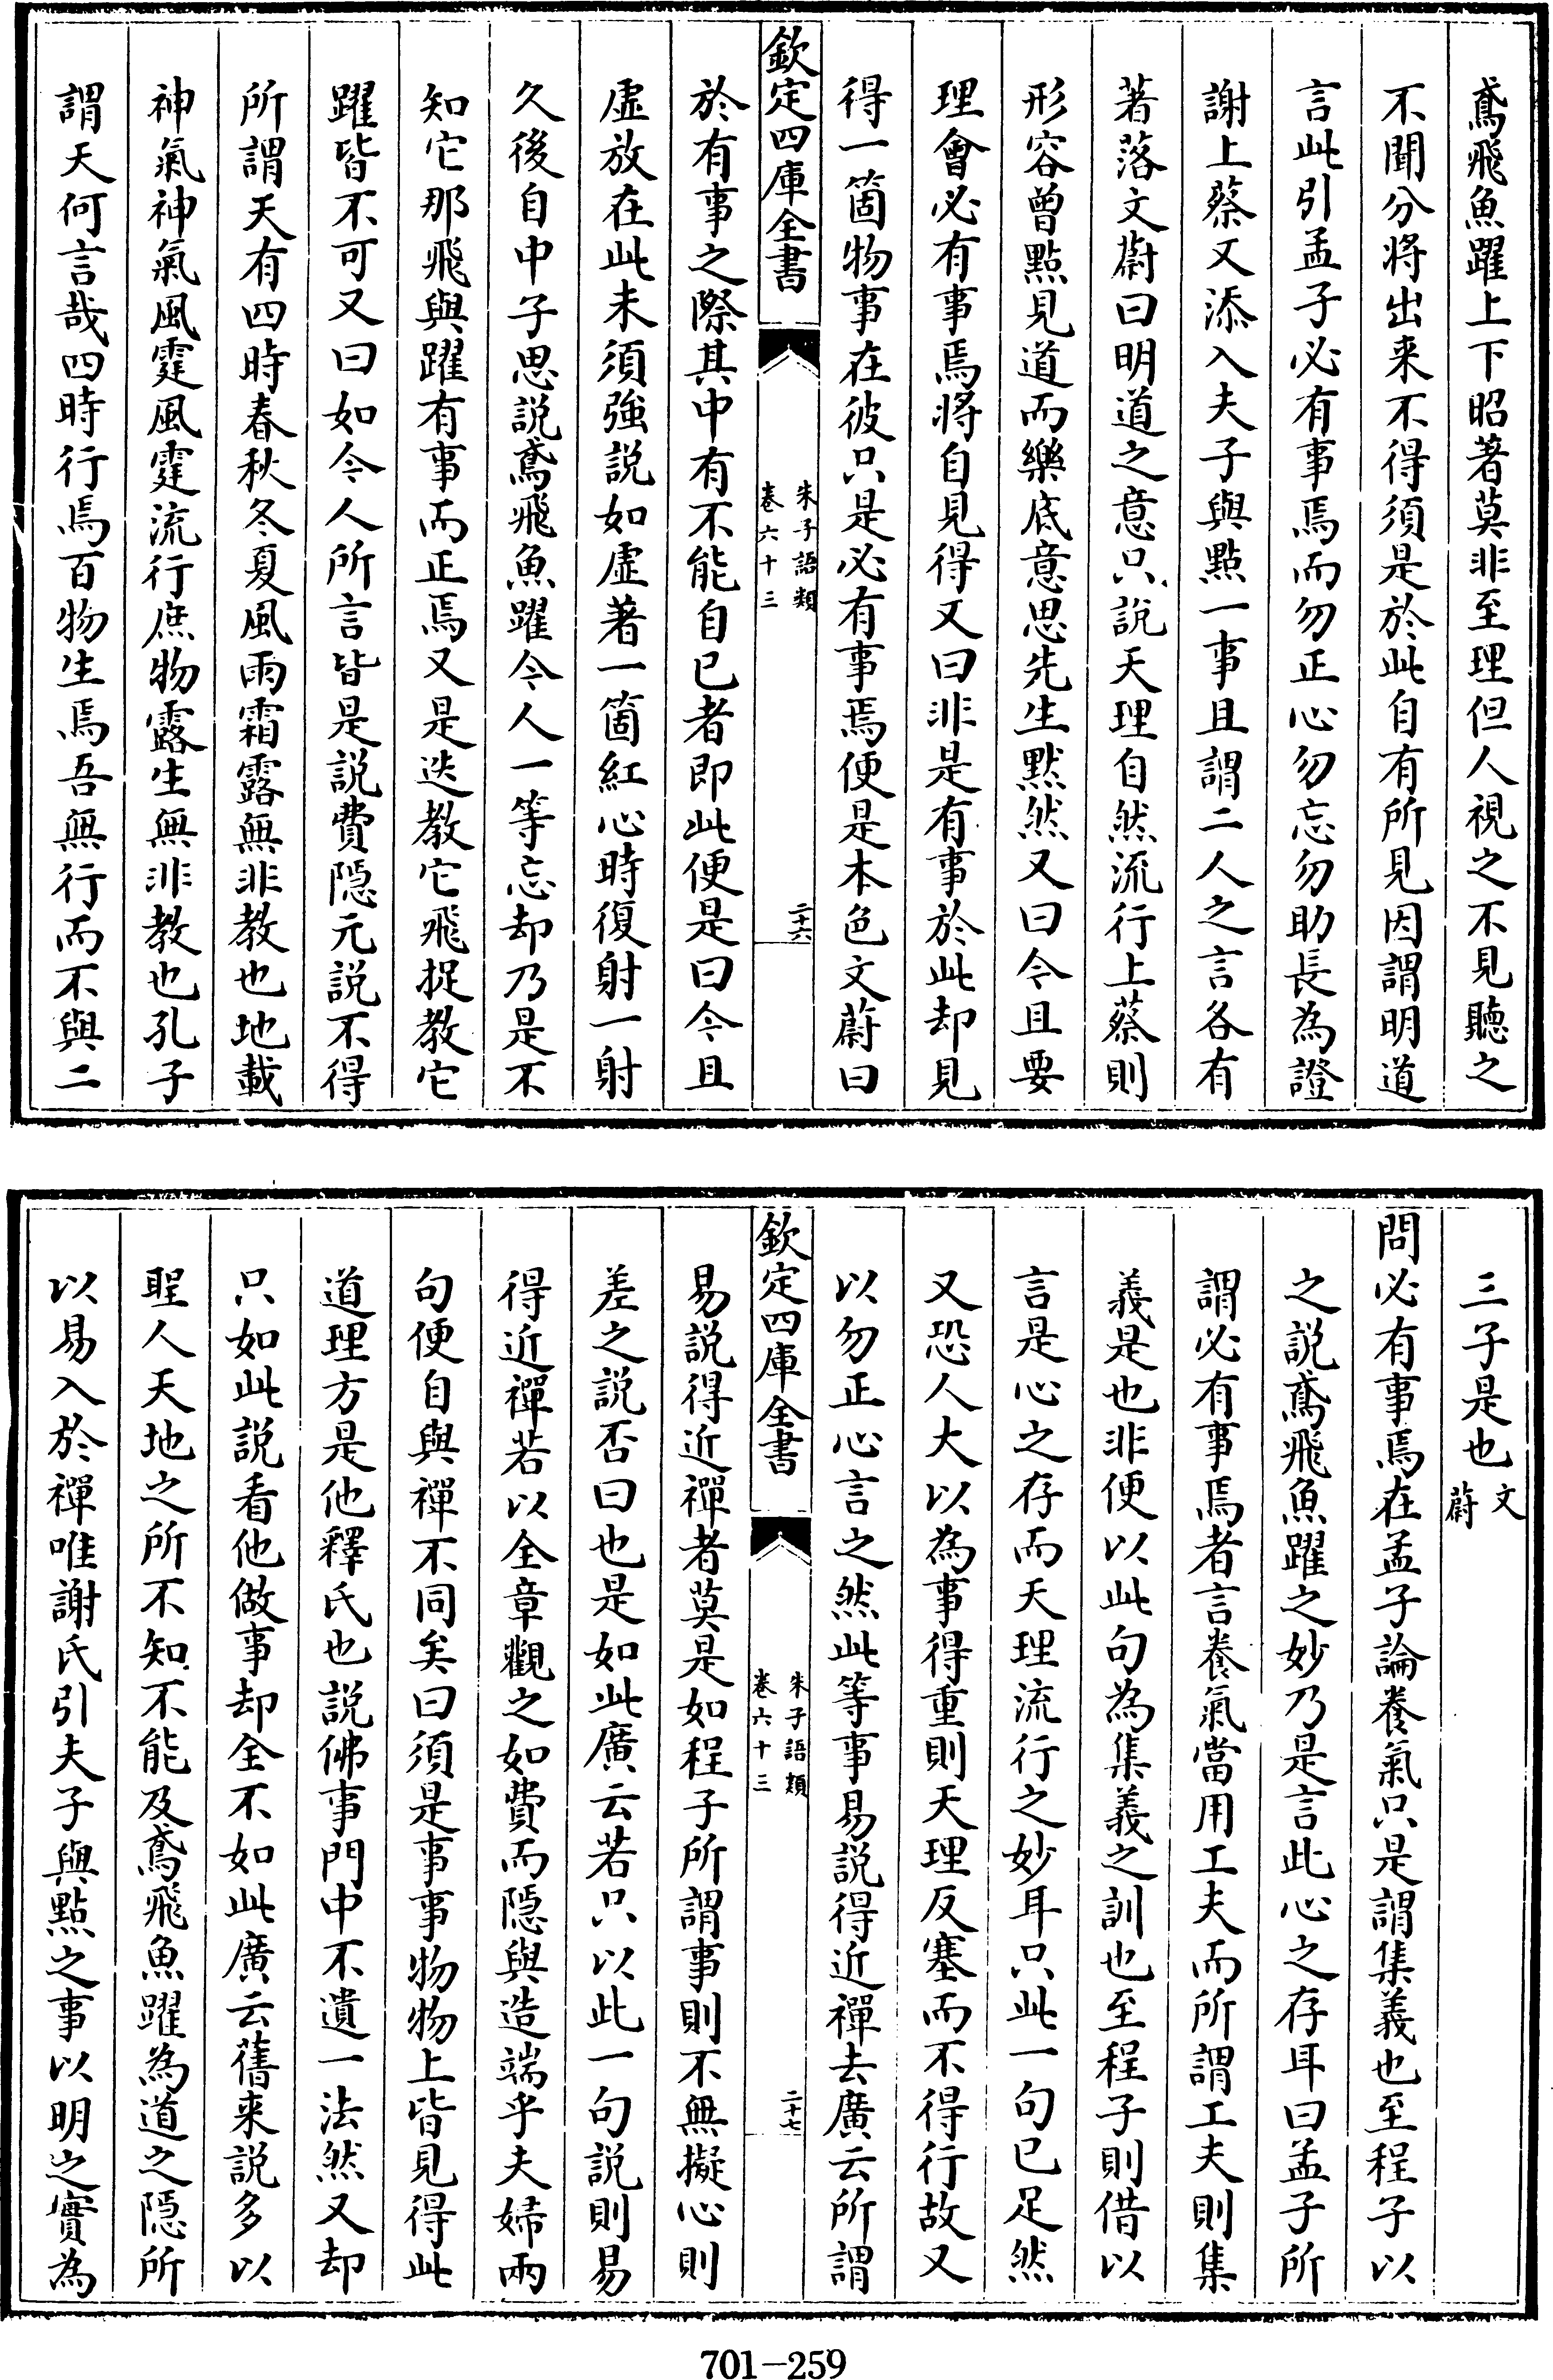 鳶飛魚躍上下昭著莫非至理但人視之不見聽之
不聞分將出来不得須是於此自有所見因謂明道
言此引孟子必有事焉而勿正心勿忘勿助長為證
謝上蔡又添入夫子與點一事且謂二人之言各有
著落文蔚曰明道之意只說天理自然流行上蔡則
形容曾點見道而樂底意思先生黙然又曰今且要
理會必有事焉將自見得又曰非是有事於此却見
得一箇物事在彼只是必有事焉便是本色文蔚曰
欽定四庫全書
朱子語類
卷六十三
二十六
於有事之際其中有不能自已者即此便是曰今且
虛放在此未須強說如虛著一箇紅心時復射一射
久後自中子思說鳶飛魚躍今人一等忘却乃是不
知它那飛與躍有事而正焉又是迭教它飛捉教它
躍皆不可又曰如今人所言皆是說費隱元說不得
所謂天有四時春秋冬夏風雨霜露無非教也地載
神氣神氣風霆風霆流行庶物露生無非教也孔子
謂天何言哉四時行焉百物生焉吾無行而不與二
三子是也文蔚
問必有事焉在孟子論養氣只是謂集義也至程子以
之說鳶飛魚躍之妙乃是言此心之存耳曰孟子所
謂必有事焉者言養氣當用工夫而所謂工夫則集
義是也非便以此句為集義之訓也至程子則借以
言是心之存而天理流行之妙耳只此一句已足然
又恐人大以為事得重則天理反塞而不得行故又
以勿正心言之然此等事易說得近禪去廣云所謂
欽定四庫全書
朱子語類
卷六十三
二十七
易說得近禪者莫是如程子所謂事則不無擬心則
差之說否曰也是如此廣云若只以此一句說則易
得近禪若以全章觀之如費而隱與造端乎夫婦兩
句便自與禪不同矣曰須是事事物物上皆見得此
道理方是他釋氏也說佛事門中不遺一法然又却
只如此說看他做事却全不如此廣云舊来說多以
聖人天地之所不知不能及鳶飛魚躍為道之隱所
以易入於禪唯謝氏引夫子與點之事以明之實為
701-259